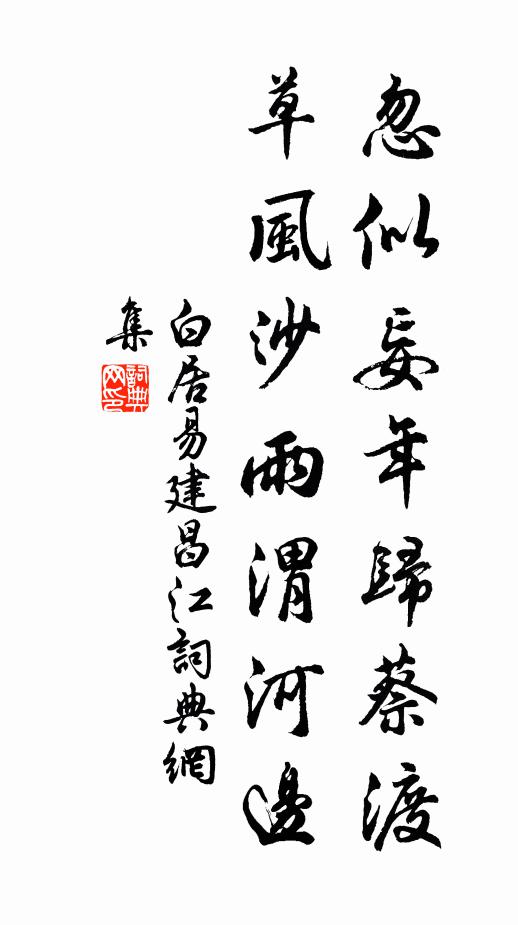 忽似妄年歸蔡渡
草風沙雨渭河邊
白居易建昌江詞典網
集
詞典
网印